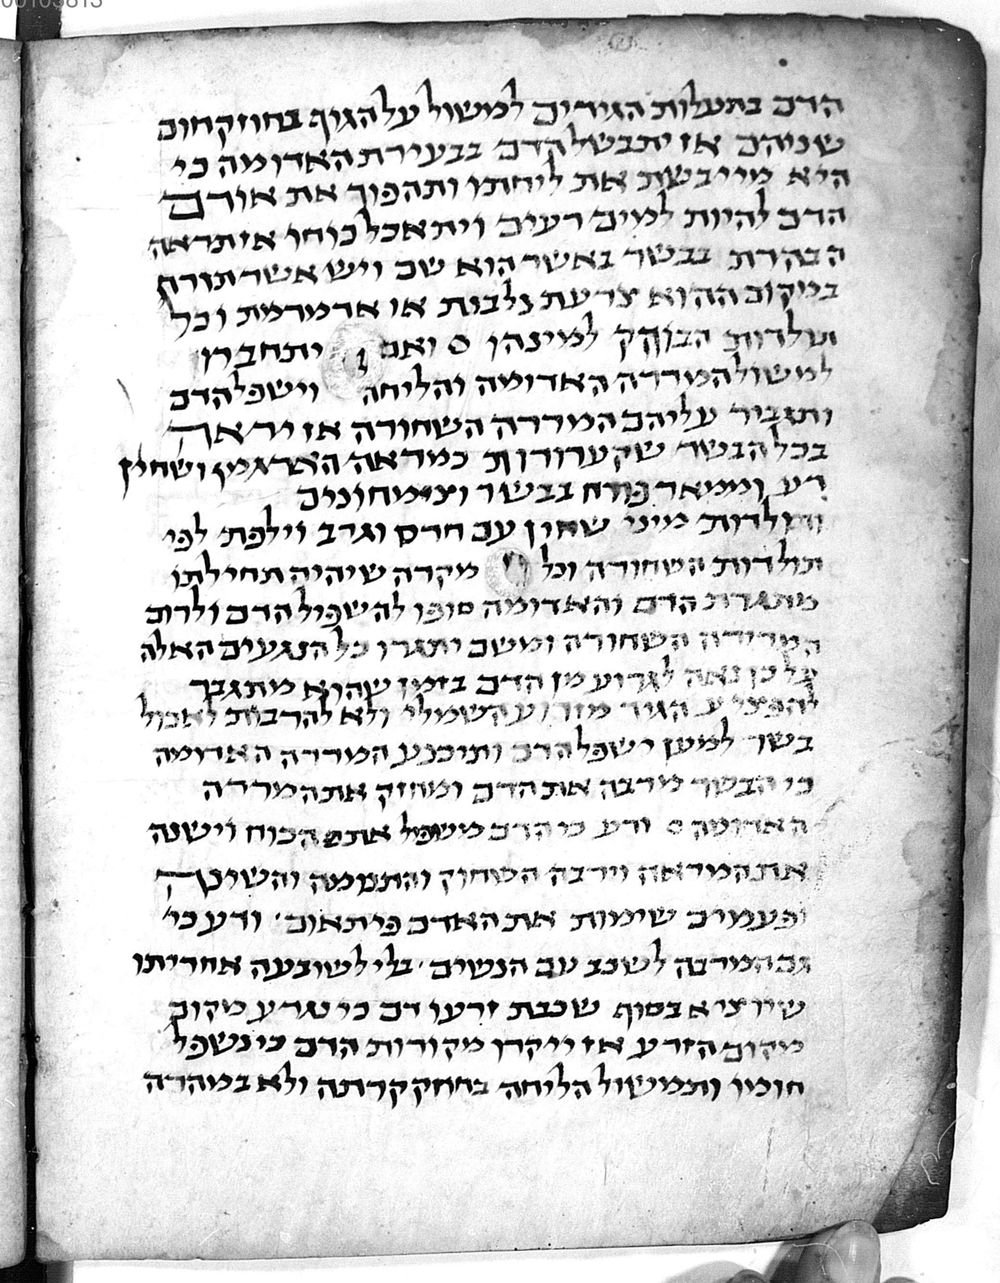 00103813
הדם בתעלות הגידים למשול על הגוף בחוזק חום
שניהם אז יתבשל הדם בבעירת האדומה כי
היא מייבשת את ליחתו ותהפוך את אודם
הדם להיות למים רעים ויתאכל כוחו אז תראה
הבהרת בבשר באשר הוא שם ויש אשר תורח
במקום ההוא צרעת לבנות או אדמדמת וכל
תולדות הבוהק למינהן ס ואם יתחברון
למשול המררה האדומה והליחה וישפל הדם
ותגביר עליהם המררה השחורה אז יראה
בכל הבשר שקערורות כמראה הארגמן ושחין
רע וממאר פורח בבשר וצימחונים
ותולדות מיני שחין עם חרס וגרב וילפת לפי
תולדות השחורה וכל מקרה שיהיה תחילתו
מתגרת הדם והאדומה סופו להשפיל הדם ולרום
המרירה השחורה ומשם יתגרו כל הנגעים האלה
על כן נאה לגרוע מן הדם בזמן שהוא מתגבר
להפציע הגיד מזרוע השמאלי ולא להרבות לאכול
בשר למען ישפל הדם ותיכנע המררה האדומה
כי הבשר מרבה את הדם ומחזק את המררה
האדומה ס ודע כי הדם משפיל את הכוח וישנה
את המראה וירבה השחוק והתממה והשינה
ופעמים שימות את האדם פיתאום ודע כי
גם המרבה לשכב עם הנשים בלי לשובעה אחריתו
שיוציא בסוף שכבת זרעו דם כי נגרע מקום
מקום הזרע אז ייקרן מקורות הדם כי נשפל
חומו ותמשול הליחה בחחק קרתה ולא במהרה